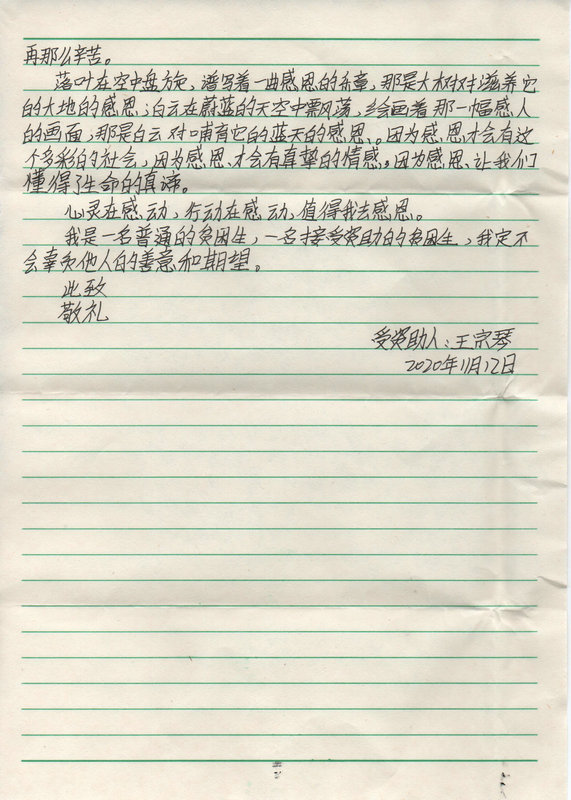 再那么辛苦。
落叶在空中盘旋，谱写着一曲感恩的乐章，那是大树对滋养它
的大地的感恩；白云在蔚蓝的天空中飘荡，绘画着那一幅感人
的画面，那是白云对哺育它的蓝天的感恩。因为感恩才会有这
个多彩的社会，因为感恩才会有真挚的情感。因为感恩、让我们
懂得了生命的真谛。
心灵在感动，行动在感动，值得我去感恩。
我是一名普通的贫困生，一名接受资助的贫困生，我定不
会辜负他人的善意和期望。
此致
敬礼
受资助人：王宗琴
2020年11月12日